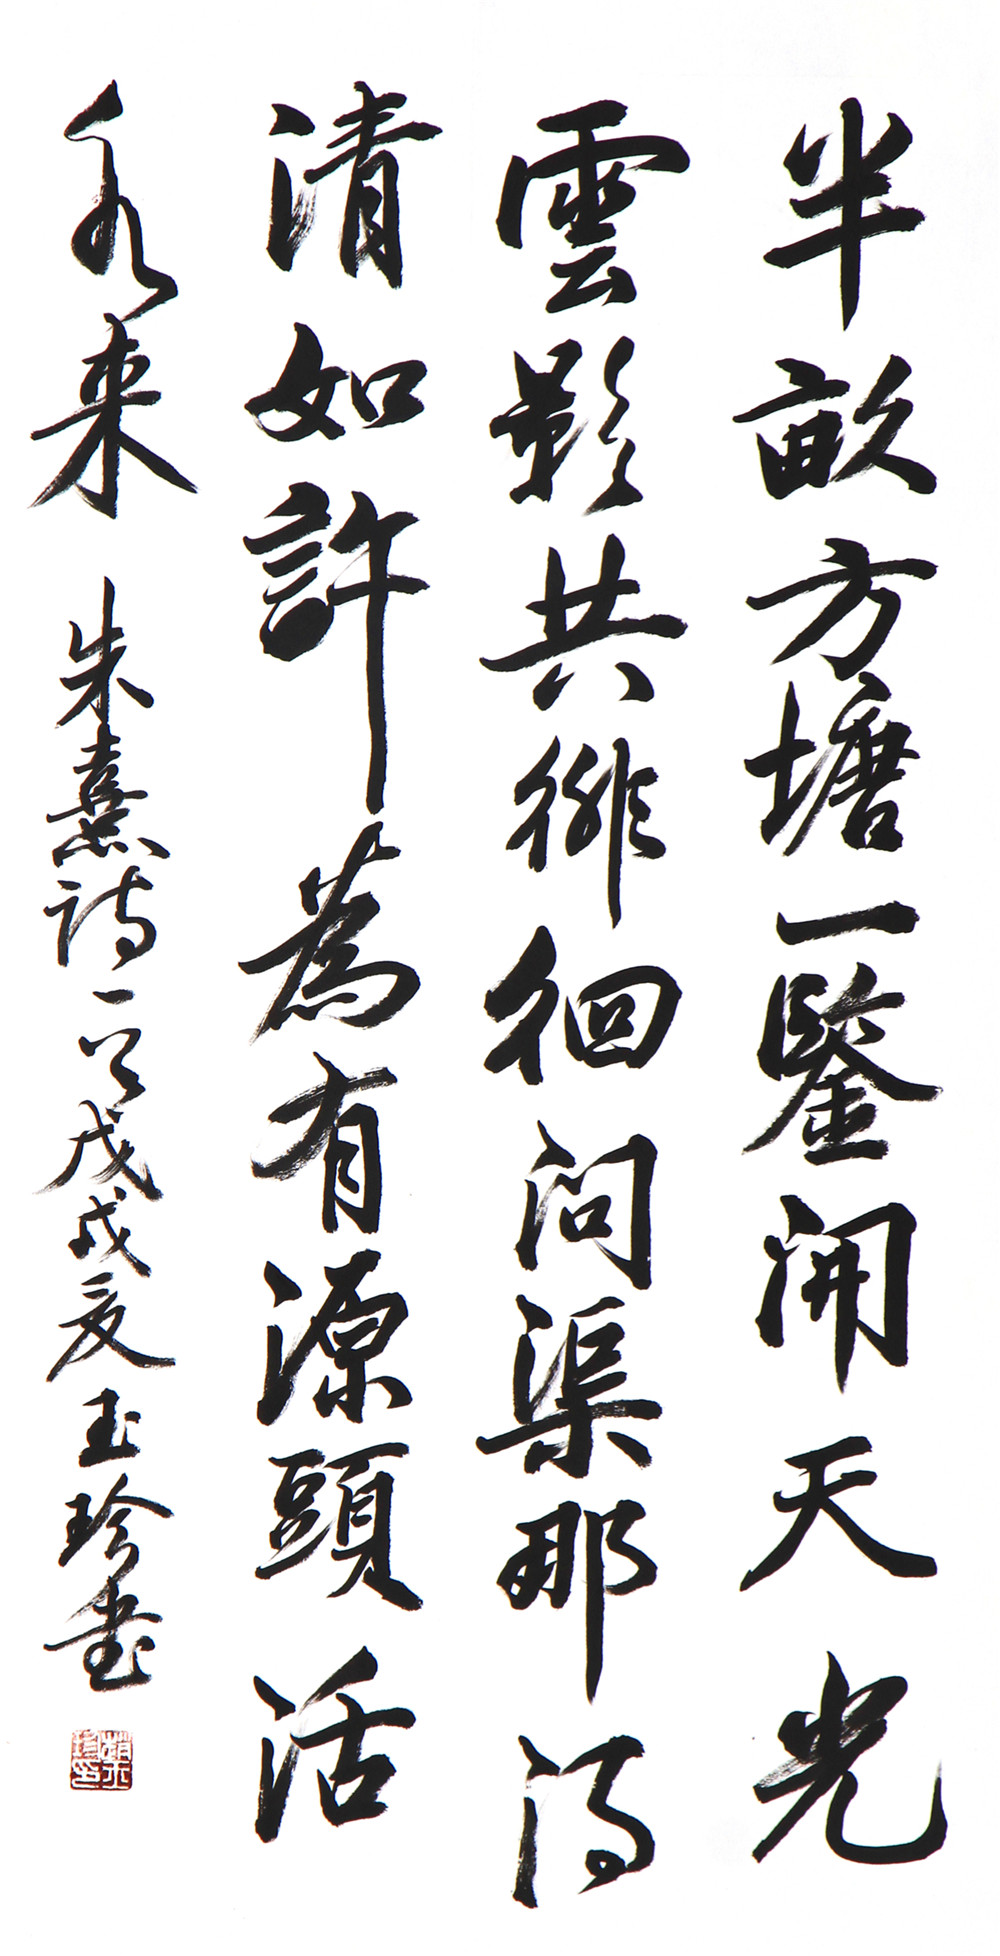 半畝方塘一鑒開天光
雲影共徘徊問渠那得
清如許為有源頭活
水来 朱熹詩一首戊戌夏玉珍書